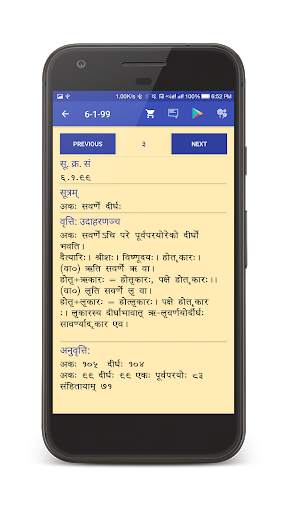 1.00K/s 6:52 PM
6-1-99
PREVIOUS ३ NEXT
सू. क्र. सं
६.१.९९
सूत्रम्
अकः सवर्णे दीर्घः
वृत्ति: उदाहरणञ्च
अकः सवर्णेऽचि परे पूर्वपरयोरेको दीर्घो
भवति।
दैत्यारिः। श्रीशः। विष्णूदयः। होतॄकारः।।
(वा०) ऋति सवर्णे ऋ वा।
होतृ+ऋकारः = होतृकारः, पक्षे होतॄकारः।।
(वा०) लृति सवर्णे लृ वा।
होतृ+लृकारः = होत्लृकारः। पक्षे होतॄकार
ः। लृकारस्य दीर्घाभावात् ऋ-लृवर्णयोर्दीर्घः
सावर्ण्याद् ॠकार एव।
अनुवृत्ति:
अकः १०५ दीर्घः १०४
अकः ९९ दीर्घः ९९ एकः पूर्वपरयोः ८३
संहितायाम् ७१